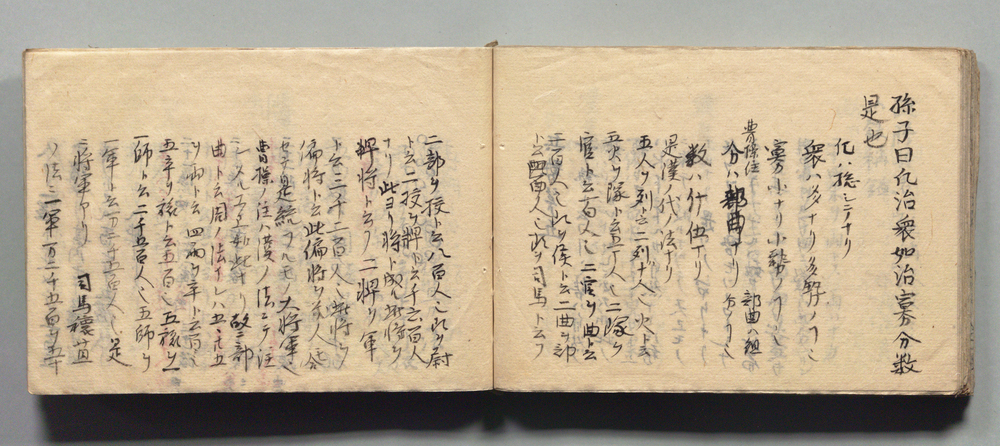 孫子曰凡治衆如治寡分数
是也
凡ハ捴シテナリ
衆ハ多ナリ多勢ノ
寡ハ小ナリ小勢ノ
曹操注
分ハ部曲ナリ
部曲ハ組
数ハ什伍ナリ
是漢ノ代ノ法ナリ
五人ヲ列ト云二列十人ヲ火ト云
五火ヲ隊ト云五十人也二隊ヲ
官ト云百人也二官ヲ曲ト云
二百人也此ヲ候ト云二曲ヲ部
ト云四百人也此ヲ司馬ト云
二部ヲ校ト云八百人也此ヲ尉
ト云二校ヲ裨ト云千六百人
ナリ此ヨリ将ト成ル此将ヲ
裨将ト云二裨ヲ軍
ト云三千二百人也此将ヲ
偏将ト云此偏将
是ヲ統フルモノ大将軍也
曹操ノ注ハ漢ノ法ニテ注
故ニ部
曲ト云周ノ法ナレハ五
ヲ両ト云四両ヲ卒ト云百
五卒ヲ旅ト云五百也五旅ヲ
師ト云二千五百人也五師ヲ
軍ト云万二千五百人也是
ニ将軍アリ 司馬穰苴
ノ法ニ一軍一万二千五百